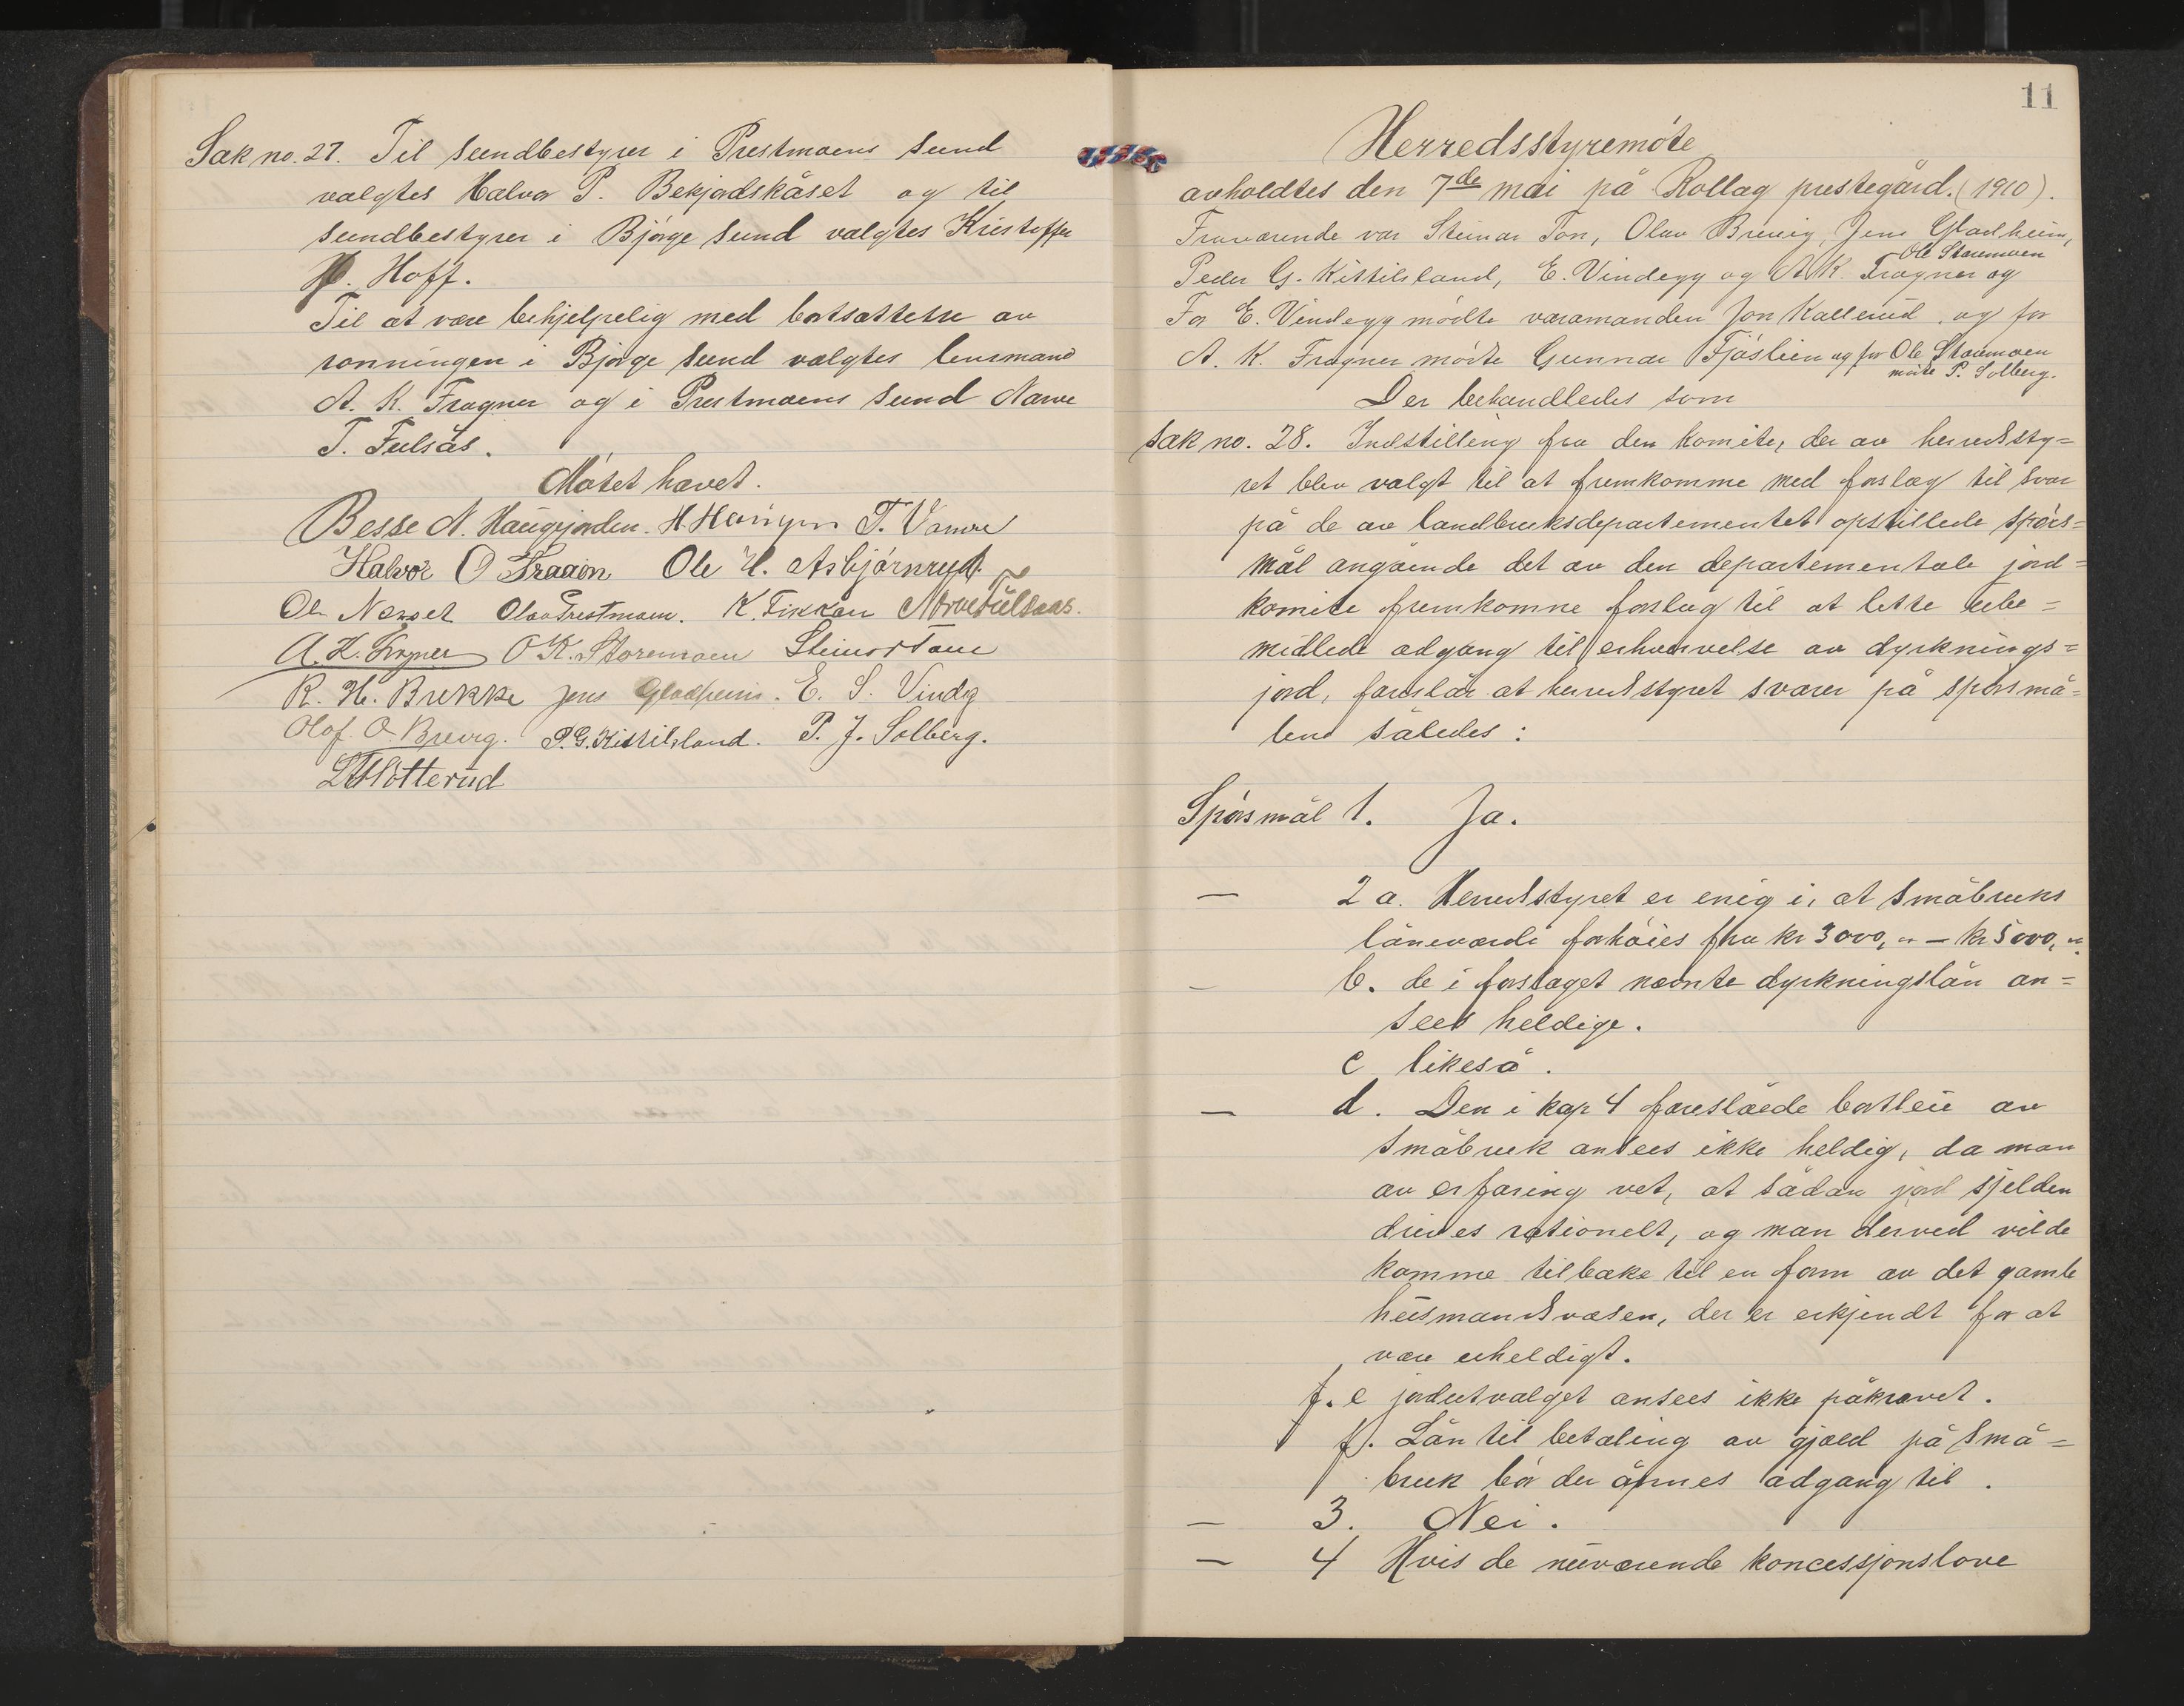 Sak no. 27. Til sundbestyrer i Prestmoens sund
valgtes Halvor P. Bekjordskåset og til
sundbestyrer i Bjørge sund valgtes Kristoffer
H. Hoff.
Til at være behjelpelig med bortsættelse av
roningen i Bjørge sund valgtes lensmand
A. K. Fragner og i Prestmoens sund Narve
T. Fulsås.
Møtet hævet.
Besse N. Haugjorden. H. T. Vamre
Halvor O Traaen Ole H. Asbjørnrud.
Ole Næset Olav Prestmoen. K. Fikkan Narve Fulsaas.
A. K. Fragner O K. Storemoen Steinar Tone
R. H. Brekke Jens Gladheim. E. S. Vindeg
Olof. O. Brevig. P. G. Kittilsland. P. J. Solberg.
11
Herredsstyremøte
avholdtes den 7de mai på Rollag prestegård. (1910).
Fraværende var Steinar Ton, Olav Brevig, Jens Gladheim,
Peder G. Kittilsland, E. Vindegg og A. K. Fragner og Ole Storemoen
For E. Vindegg mødte varamanden Jon Kallerud, og for
A. K. Fragner møtte Gunnar Fjøslien og for Ole Storemoen
møtte P. Solberg.
Der behandledes som
Sak no. 28. Indstilling fra den komite, der av herredsty=
ret blev valgt til at fremkomme med forslag til svar
på de av landbruksdepartementet opstillede spørs=
mål angående det av den departementale jord=
komite fremkomne forslag til at lette ube=
midlede adgang til erhvervelse av dyrknings=
jord, foreslår at herredstyret svarer på spørsmå=
lene således:
Spørsmål 1. Ja.
— 2 a. Herredstyret er enig i, at småbruks
låneværdi forhøies fra kr 3000,00 — kr 5000,00.
— b. de i forslaget nævnte dyrkningslån an=
sees heldige.
c likeså.
— d. Den i kap 4 foreslåede bortleie av
småbruk ansees ikke heldig, da man
av erfaring vet, at sådan jord sjelden
drives rationelt, og man derved vilde
komme tilbake til en form av det gamle
husmandsvæsen, der er erkjendt for at
være uheldigt.
f. e jordutvalget ansees ikke påkrævet.
f. Lån til betaling av gjæld på små=
bruk bør der åpnes adgang til.
— 3. Nei.
— 4 Hvis de nuværende koncessjonslove